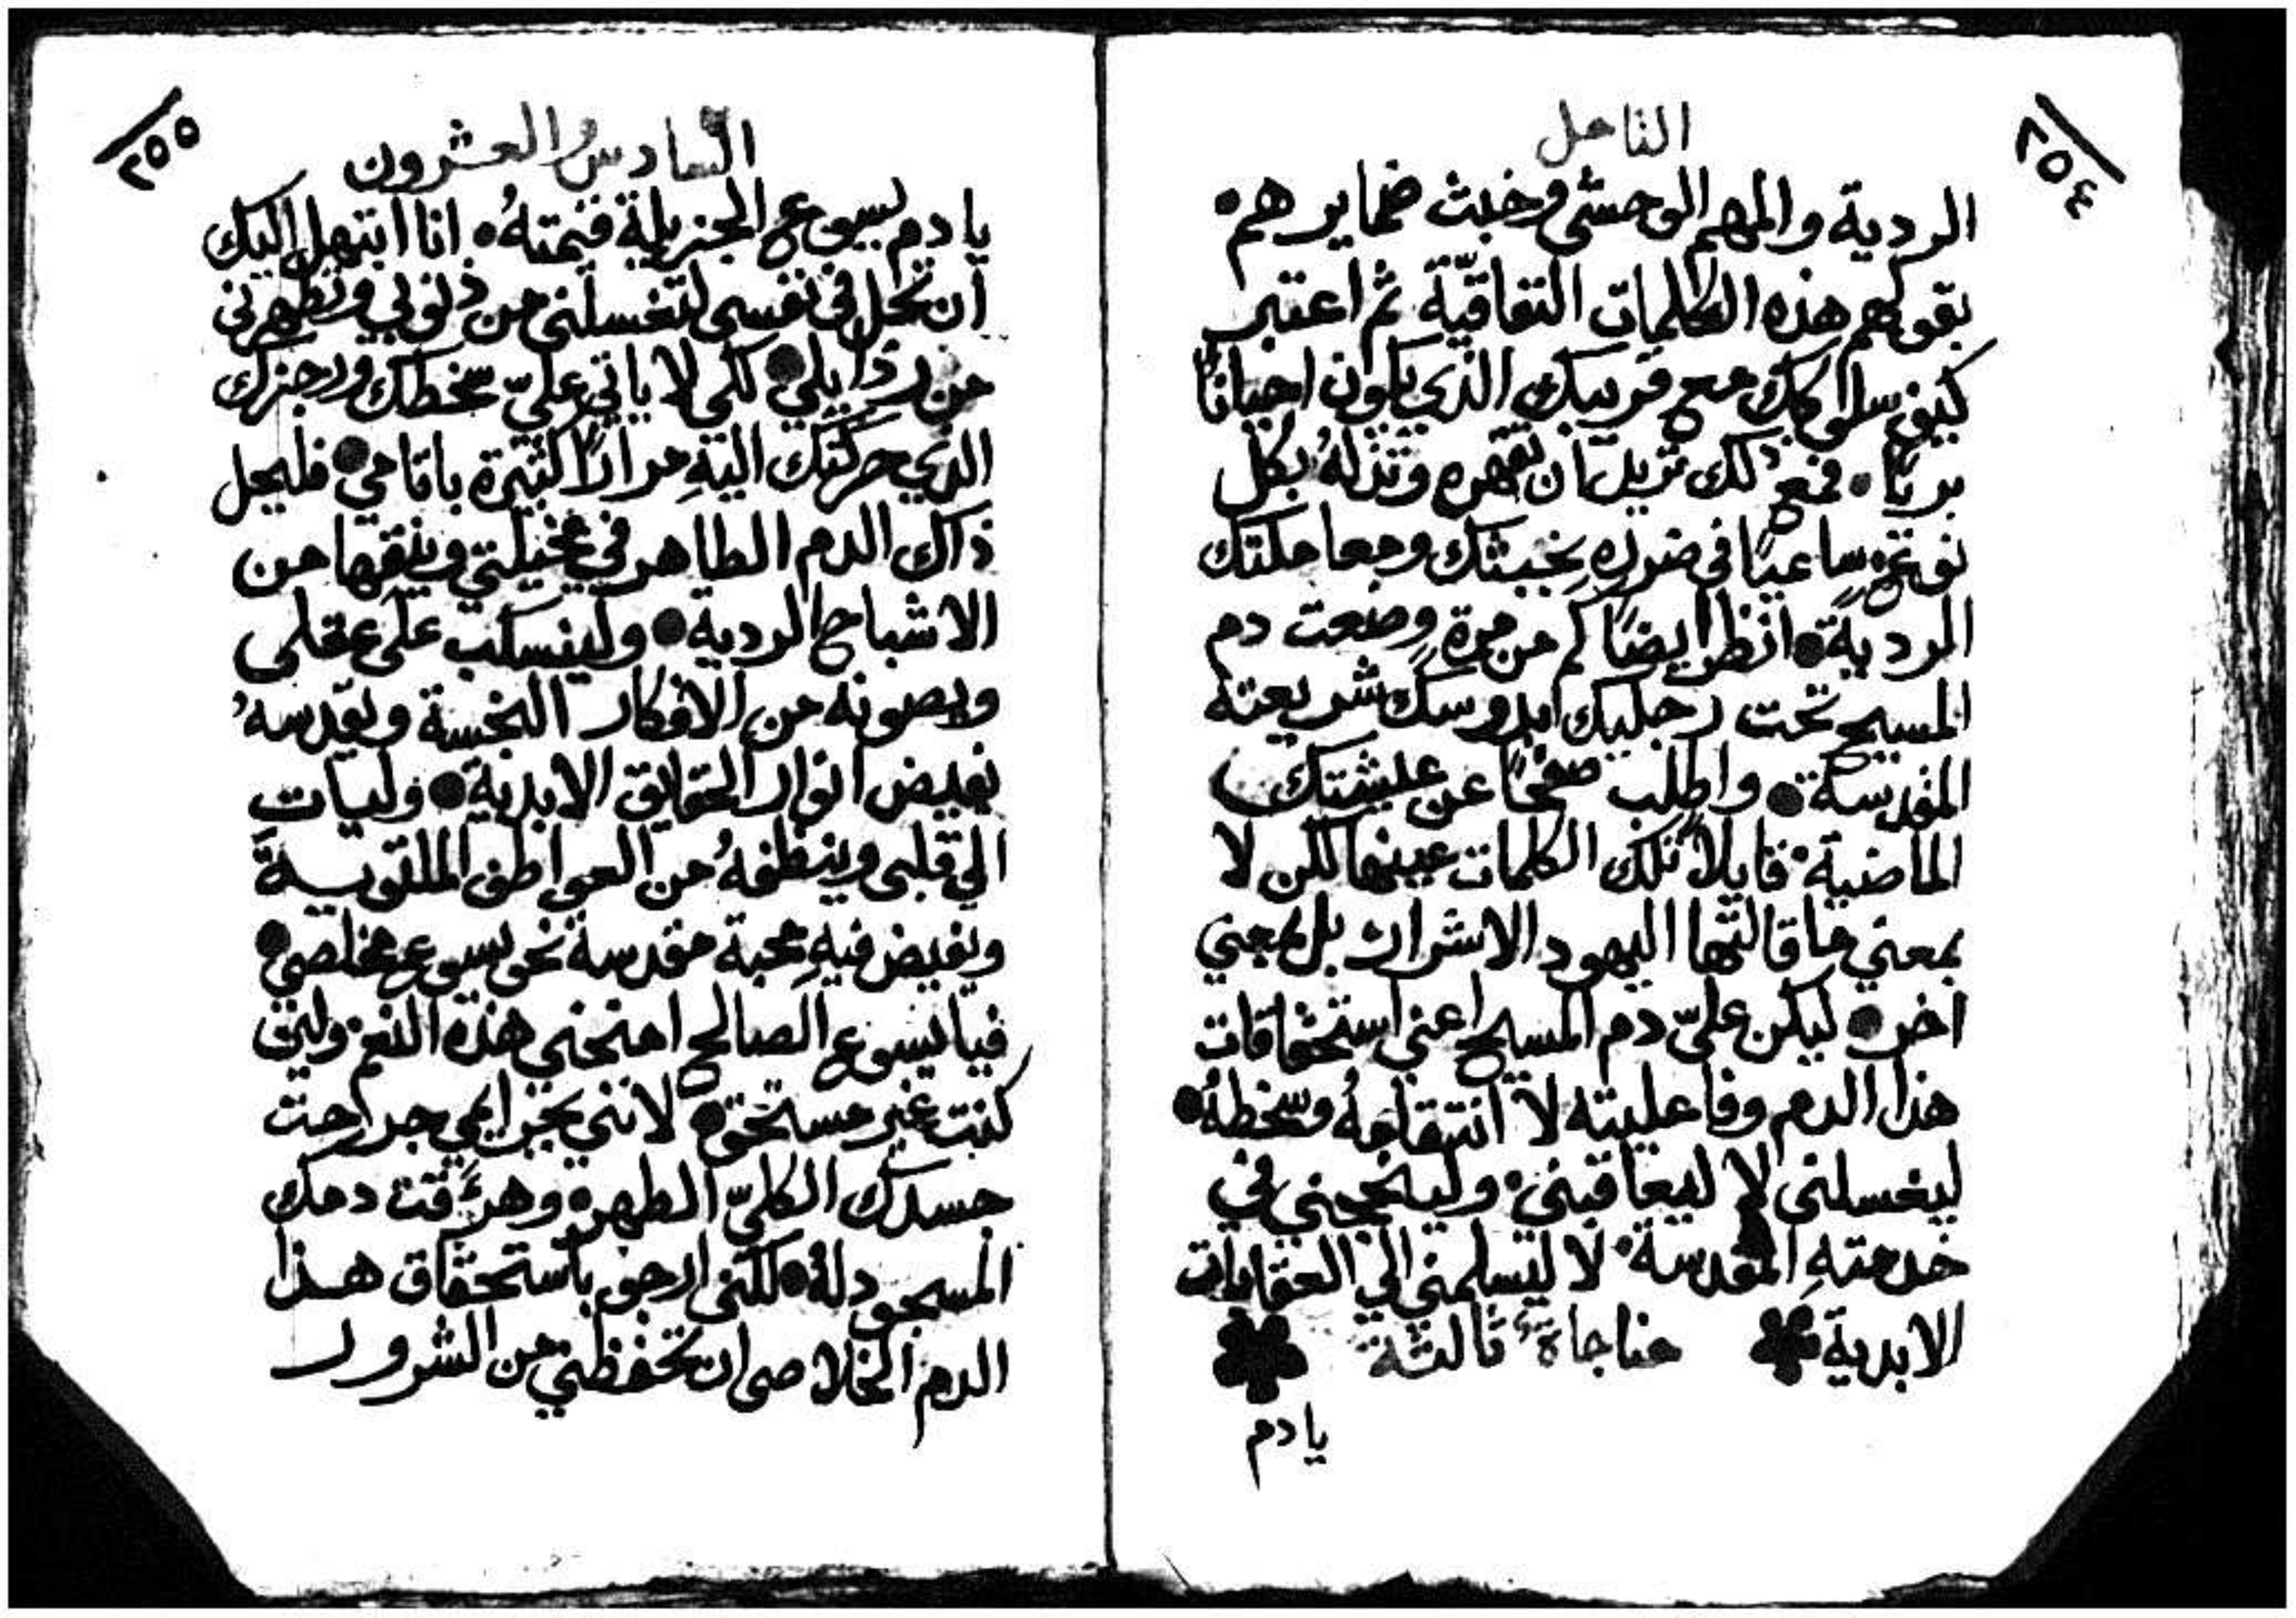 ٢٥٤
التامل
الردية والمهم الوحشي وخبث ضمايرهم
بقولهم هذه الكلمات النفاقيّة ثم اعتبر
كيف سلوكك مع قريبك الذي يكون احيانًا
بريًا فمع ذلك تريد ان تقهره وتذلهُ بكل
نوعٍ ساعيًا في ضررهِ بخبثك ومعاملتك
الرديةً انظر ايضًا كم من مرةٍ وضعت دم
المسيح تحت رجليك شريعته
المقدسة واطلب صفحًا عن عيشتك
الماضية قايلاً تلك الكلمات عينها لكن لا
بمعني ما قالتها اليهود الاشرار بل بمعني
اخر ليكن عليّ دم المسيح اعني استحقاقات
هذا الدم وفاعليته لا انتقامهُ وسخطهُ
ليغسلني لا ليعاقبني ولينجحني في
خدمتهِ المقدسة لا ليسلمني الي العقابات
الابدية مناجاة ثالثة
يا دم
٢٥٥
السادس والعشرون
يا دم يسوع الجزيلة قيمتهُ انا ابتهل اليك
ان تحل في نفسي لتغسلني من ذنوبي وتطهرني
من رذايلي لكي لا ياتي عليّ سخطك ورجزك
الذي حركتك اليهِ مرارًا كثيرة باثامي فليحل
ذاك الدم الطاهر في مخيلتي وينقها من
الاشباح الردية ولينسكب على عقلي
ويصونه من الافكار النجسة ويقدسهُ
بفيض انوار الحقايق الابدية وليات
الي قلبي وينظفهُ من العواطف الملتوية
ويفيض فيهِ محبة مقدسة نحو يسوع مخلصي
فيا يسوع الصالح امنحني هذه النعم ولين
كنت غير مستحق لانني بجرايمي جرحت
جسدك الكليّ الطهر وهرقت دمك
المسجود لهُ لكنني ارجو باستحقاق هذا
الدم الخلاصي ان تحفظني من الشرور